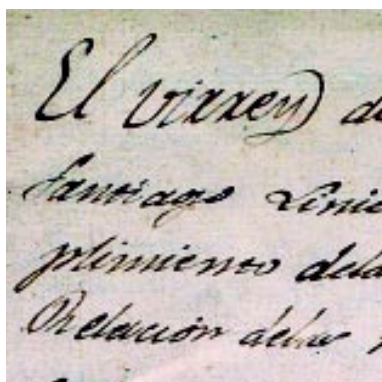 El virrey de
Santiago Linie
plimiento dela
Relación delos